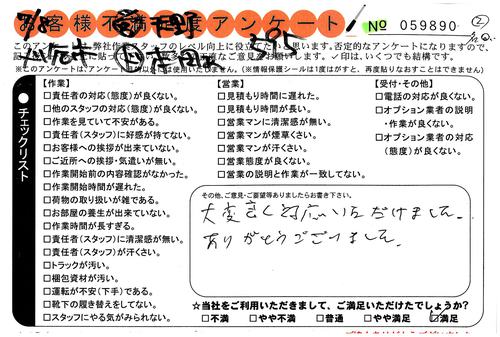 お客様不満足度アンケート!
№ 059890 ②
このアンケートは、弊社作業スタッフのレベル向上に役立てたいと思います。否定的なアンケートになりますので、
✓印は、いくつでも結構です。
※このアンケートは、アンケート以外には使用いたしません。(※情報保護シールは1度はがすと、再度貼りなおすことはできません)
チェックリスト
【作業】
□責任者の対応(態度)が良くない。
□他のスタッフの対応(態度)が良くない。
□作業を見ていて不安がある。
□責任者(スタッフ)に好感が持てない。
□お客様への挨拶が出来ていない。
□ご近所への挨拶・気遣いが無い。
□作業開始前の内容確認がなかった。
□作業開始時間が遅れた。
□荷物の取り扱いが雑である。
□お部屋の養生が出来ていない。
□作業時間が長すぎる。
□責任者(スタッフ)に清潔感が無い。
□責任者(スタッフ)が汗くさい。
□トラックが汚い。
□梱包資材が汚い。
□運転が不安(下手)である。
□靴下の履き替えをしてない。
□スタッフにやる気がみられない。
【営業】
□見積もり時間に遅れた。
□見積もり時間が長い。
□営業マンに清潔感が無い。
□営業マンが煙草くさい。
□営業マンが汗くさい。
□営業態度が良くない。
□営業の説明と作業が一致してない。
【受付・その他】
□電話の対応が良くない。
□オプション業者の説明
・作業が良くない。
□オプション業者の対応
(態度)が良くない。
その他、ご意見・ご要望等ありましたらお書き下さい。
大変良く対応いただけました。
ありがとうございました。
☆当社をご利用いただきまして、ご満足いただけたでしょうか?
□不満 □やや不満 □普通 □やや満足 ☑満足